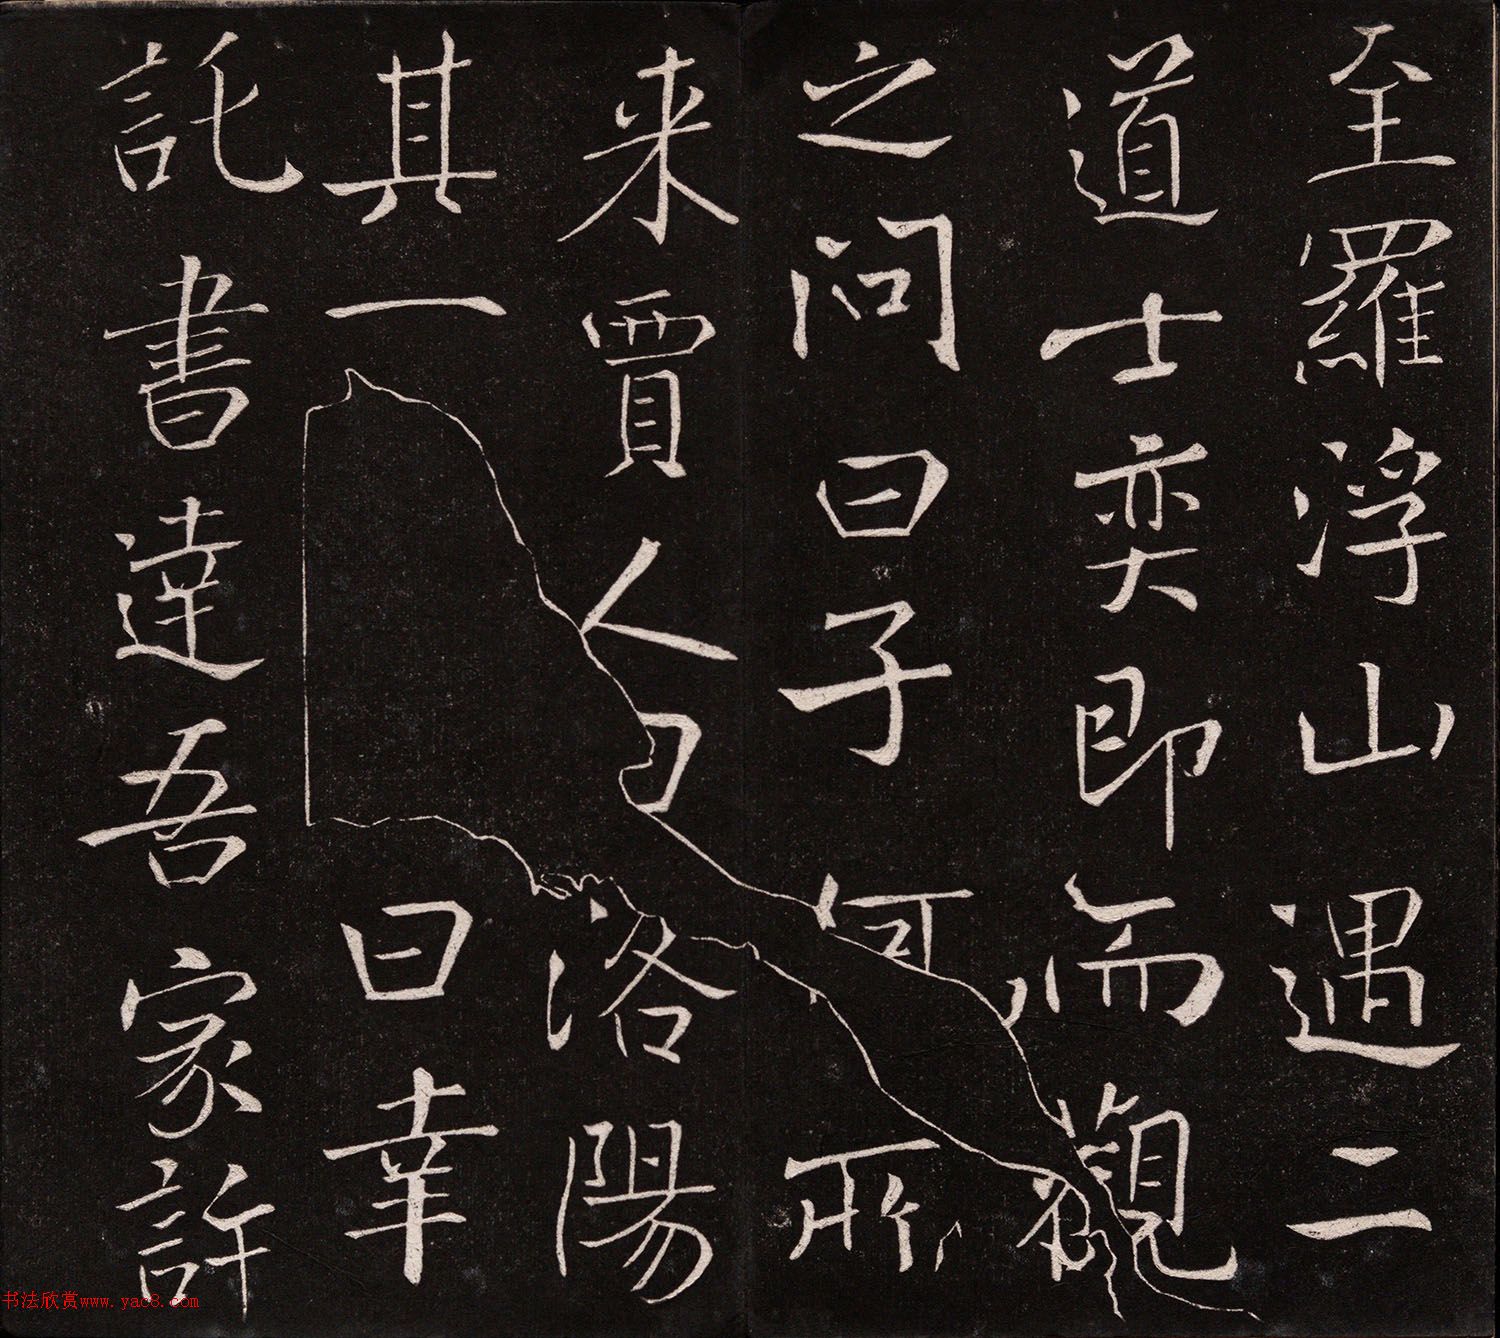 至羅浮山遇二
道士奕即而觀
之問曰子何所
来賈人曰洛陽
其一曰幸
託書達吾家許
书法欣赏www.yac8.com